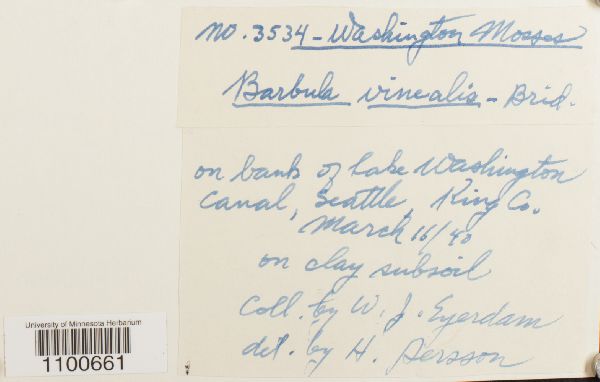 No. 3534 - Washington Mosses
Barbula vinealis - Brid.
on bank of Lake Washington
Canal, Seattle, King Co.
March 16/40
on clay subsoil
Coll. by W. J. Eyerdam
det. by H. Persson
University of Minnesota Herbarium
1100661